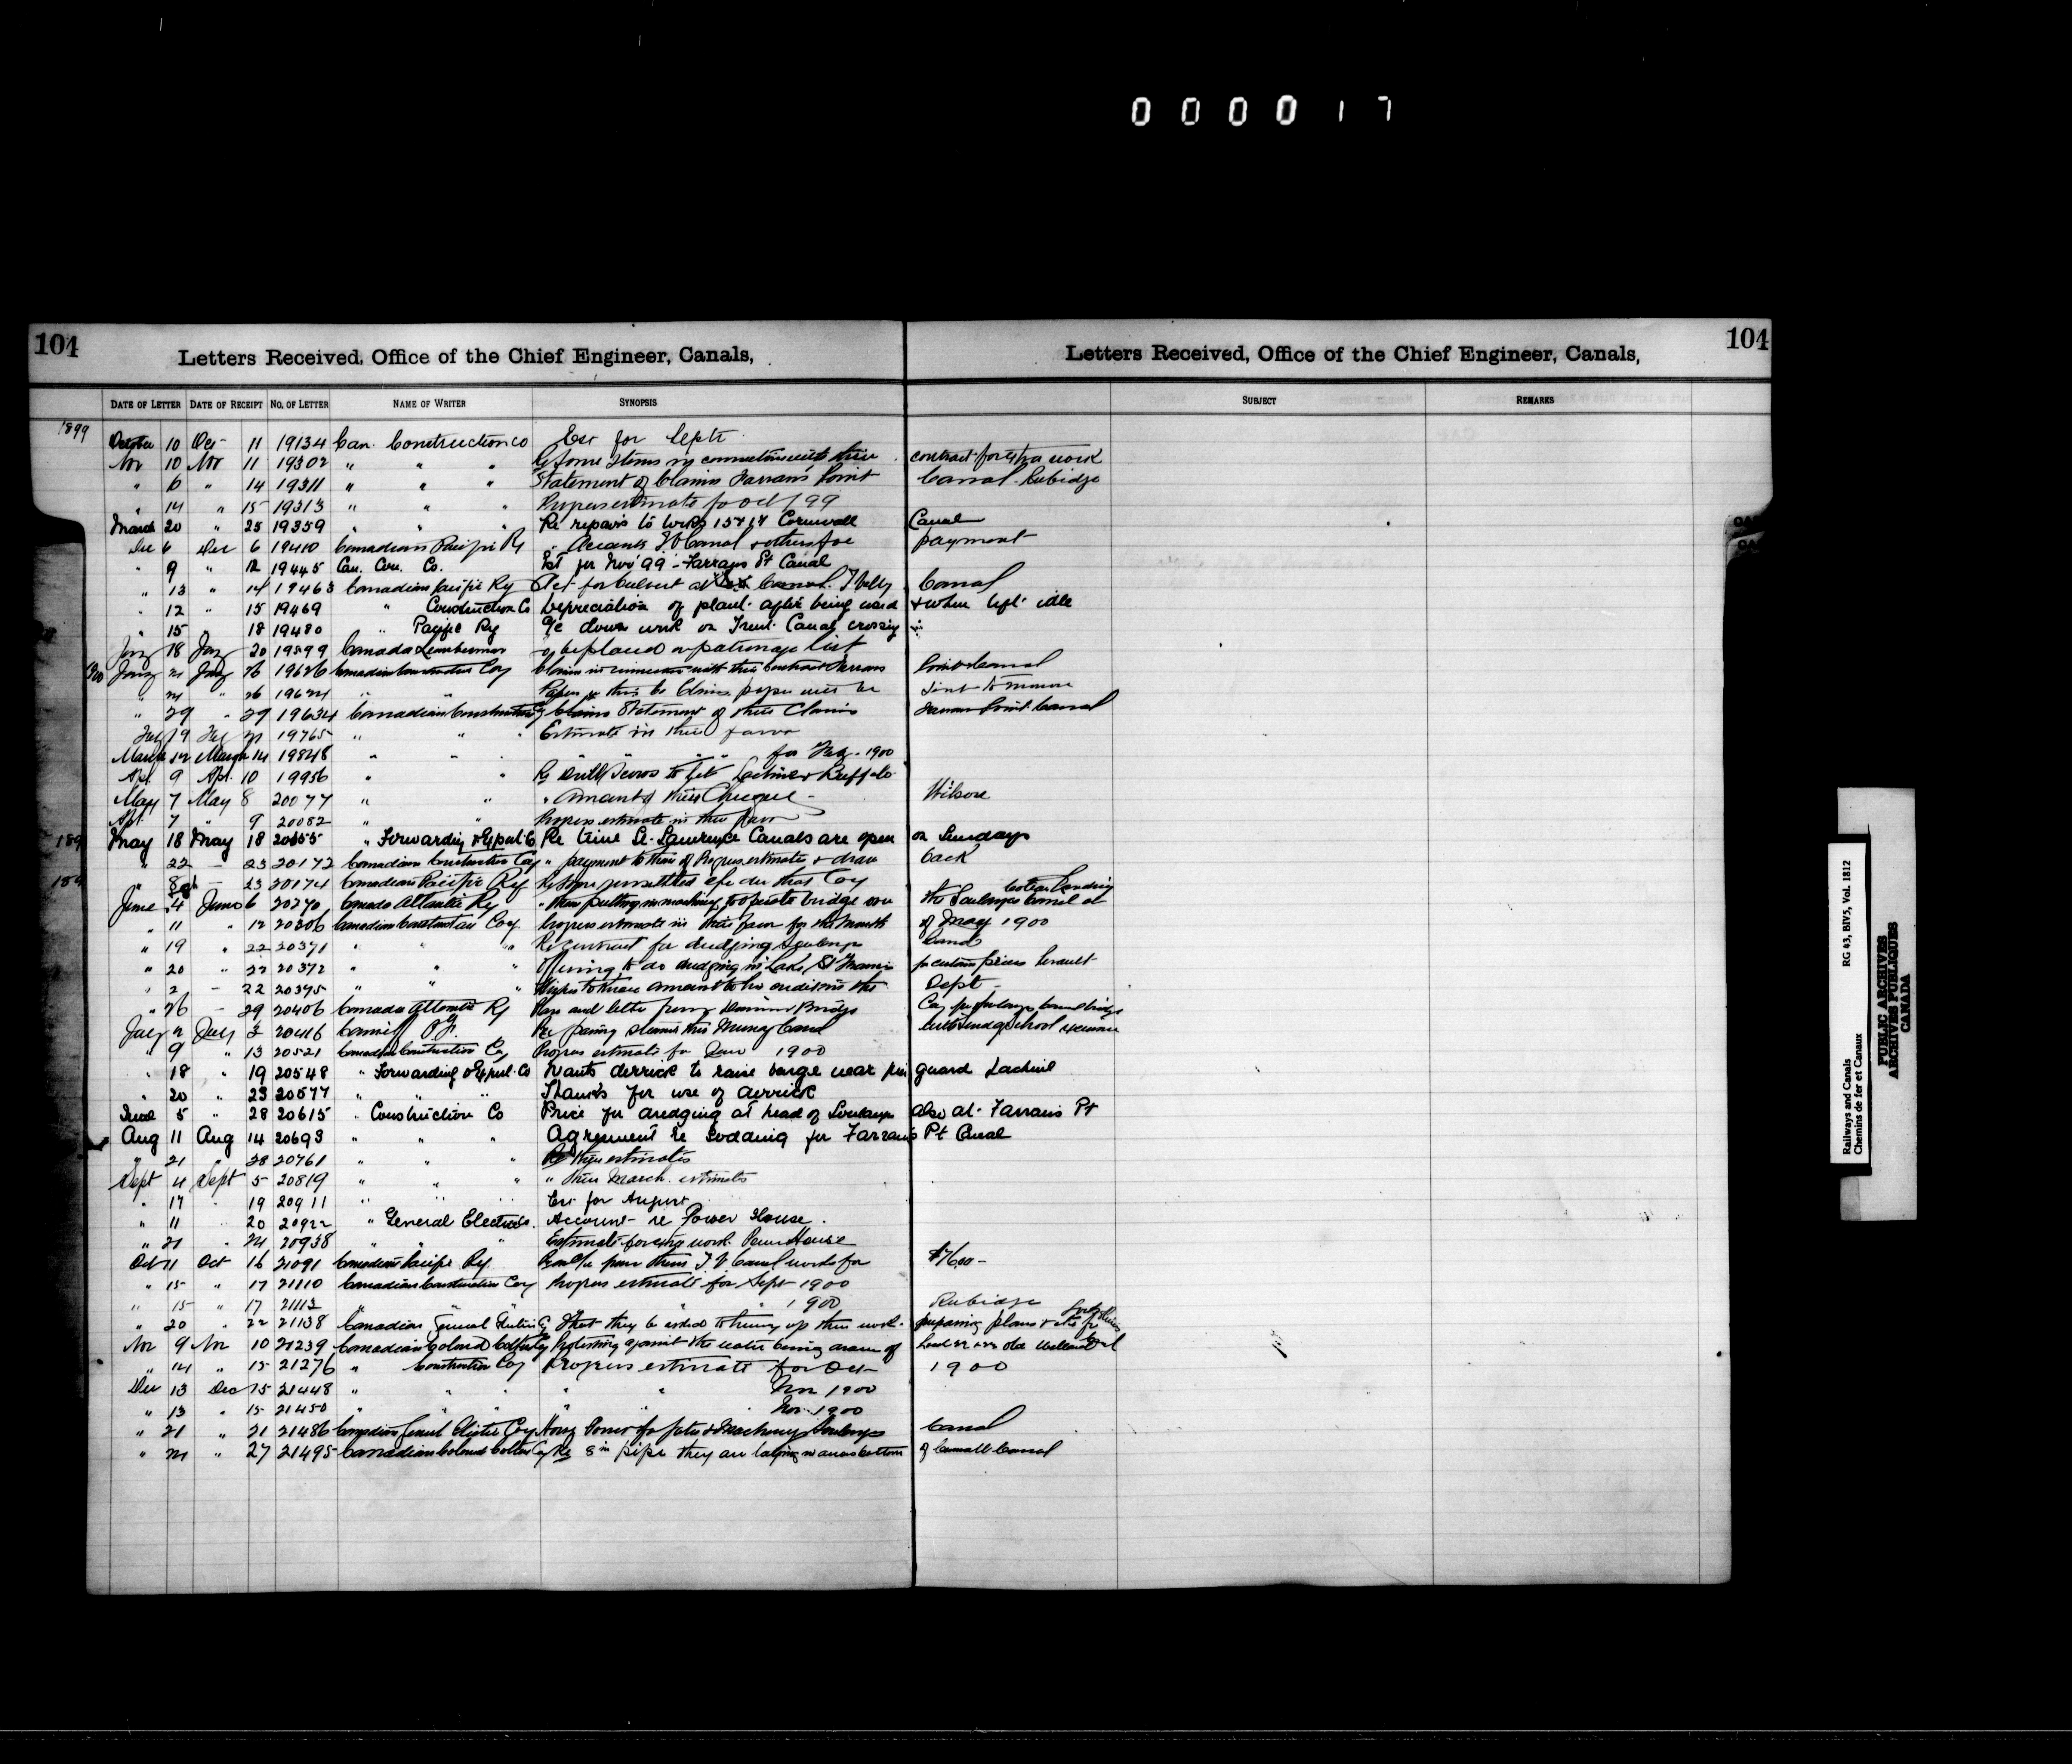 000017
104
Letters Received, Office of the Chief Engineer, Canals,
Letters Received, Office of the Chief Engineer, Canals,
104
DATE OF LETTER DATE OF RECEIPT NO. OF LETTER NAME OF WRITER SYNOPSIS SUBJECT REMARKS
1899
October 10 Oct 11 19134 Can. Construction Co Est for Sept
Nov 10 Nov 11 19302 " " " Re some items in connection with their contract for extra work
" 6 " 14 19311 " " " Statement of Claims Farrans Point Canal Rubidge
" 14 " 15 19313 " " " Progress estimate for Oct / 99
March 20 " 25 19359 " " " Re repairs to Locks 15 & 17 Cornwall Canal
Dec 6 Dec 6 19410 Canadian Pacific Ry " Accounts T V Canal & others for payment
" 9 " 12 19445 Can. Con. Co. Est for Nov 99 - Farrans Pt Canal
" 13 " 14 19463 Canadian Pacific Ry Acct for Culvert at T Valley Canal
" 12 " 15 19469 " Construction Co Depreciation of plant after being used & when left idle
" 15 " 18 19480 " Pacific Ry Re down work on Trent Canal crossing
Jany 18 Jany 20 19599 Canada Lumberman To be placed on patronage list
1900 Jany 24 Jany 26 19626 Canadian Construction Coy Claim in connection with their Contract Farrans Point Canal
" 24 " 26 19624 " " Papers
" 29 " 29 19634 Canadian Construction Coy Statement of their Claims Farrans Point Canal
Feby 19 Feby 21 19765 " " " Estimate in their favor
March 12 March 14 19848 " " " " " " for Feby. 1900
Apl. 9 Apl. 10 19956 " " Re Drill Scows to let Lachine & Buffalo
May 7 May 8 20077 " " " Amount of their Cheque - Wilson
Apl. 7 " 9 20082 " " Progress estimate in their favor
May 18 May 18 20155 " Forwarding & Export Co Re time St. Lawrence Canals are open on Sundays
" 22 - 23 20172 Canadian Construction Coy " payment to them of Progress estimate & draw back
" 23 20174 Canadian Pacific Ry Re some unsettled a/cs due that Coy
June 4 June 6 20270 Canada Atlantic Ry " their putting in machinery to operate bridge over the Soulanges Canal at Coteau Landing
" 11 " 12 20306 Canadian Construction Coy. Progress estimate in their favor for the month of May 1900
" 19 " 22 20371 " " " Re contract for dredging Soulanges Canal
" 20 " 22 20372 " " " Offering to do dredging in Lake St Francis for certain prices
" 2 - 22 20375 " " " Wishes to know amount to his credit in the Dept -
" 26 - 29 20406 Canada Atlantic Ry Plan and letter from Dominion Bridge Coy for Soulanges Canal bridge
July 2 July 3 20416 Re passing steamer thro Murray Canal
" 9 " 13 20521 Canadian Construction Co Progress estimate for June 1900
" 18 " 19 20548 " Forwarding & Export Co Wants derrick to raise barge near pier guard Lachine
" 20 " 23 20577 " " " Thanks for use of derrick
June 5 " 28 20615 " Construction Co Price for dredging at head of Soulanges also at Farrans Pt
Aug 11 Aug 14 20693 " " " Agreement re Sodding for Farrans Pt Canal
" 21 " 28 20761 " " " Re their estimates
Sept 4 Sept 5 20819 " " " " their March estimates
" 17 " 19 20911 " " " Est for August
" 11 " 20 20922 " General Electric Co. Account re Power House.
" 21 " 24 20938 " " " Estimate for extra work Power House
Oct 11 Oct 16 21091 Canadian Pacific Ry T V Canal works for $7600 -
" 15 " 17 21110 Canadian Construction Coy Progress estimate for Sept 1900
" 15 " 17 21113 " " " " " 1900 Rubidge
" 20 " 22 21138 Canadian General Electric Co That they be asked to hurry up their work preparing plans
Nov 9 Nov 10 21239 Canadian Colored Cotton Coy Protesting against the water being drawn of old Welland Canal
" 14 " 15 21276 " Construction Coy Progress estimate for Oct 1900
Dec 13 Dec 15 21448 " " " " " Nov 1900
" 13 " 15 21450 " " " " " Nov. 1900
" 21 " 21 21486 Canadian General Electric Coy Power for gates & Machinery Soulanges Canal
" 24 " 27 21495 Canadian Colored Cotton Coy Re 8 in pipe they are laying in across bottom of Cornwall Canal
Railways and Canals RG 43, BIV5, Vol. 1812
Chemins de fer et Canaux
PUBLIC ARCHIVES
ARCHIVES PUBLIQUES
CANADA